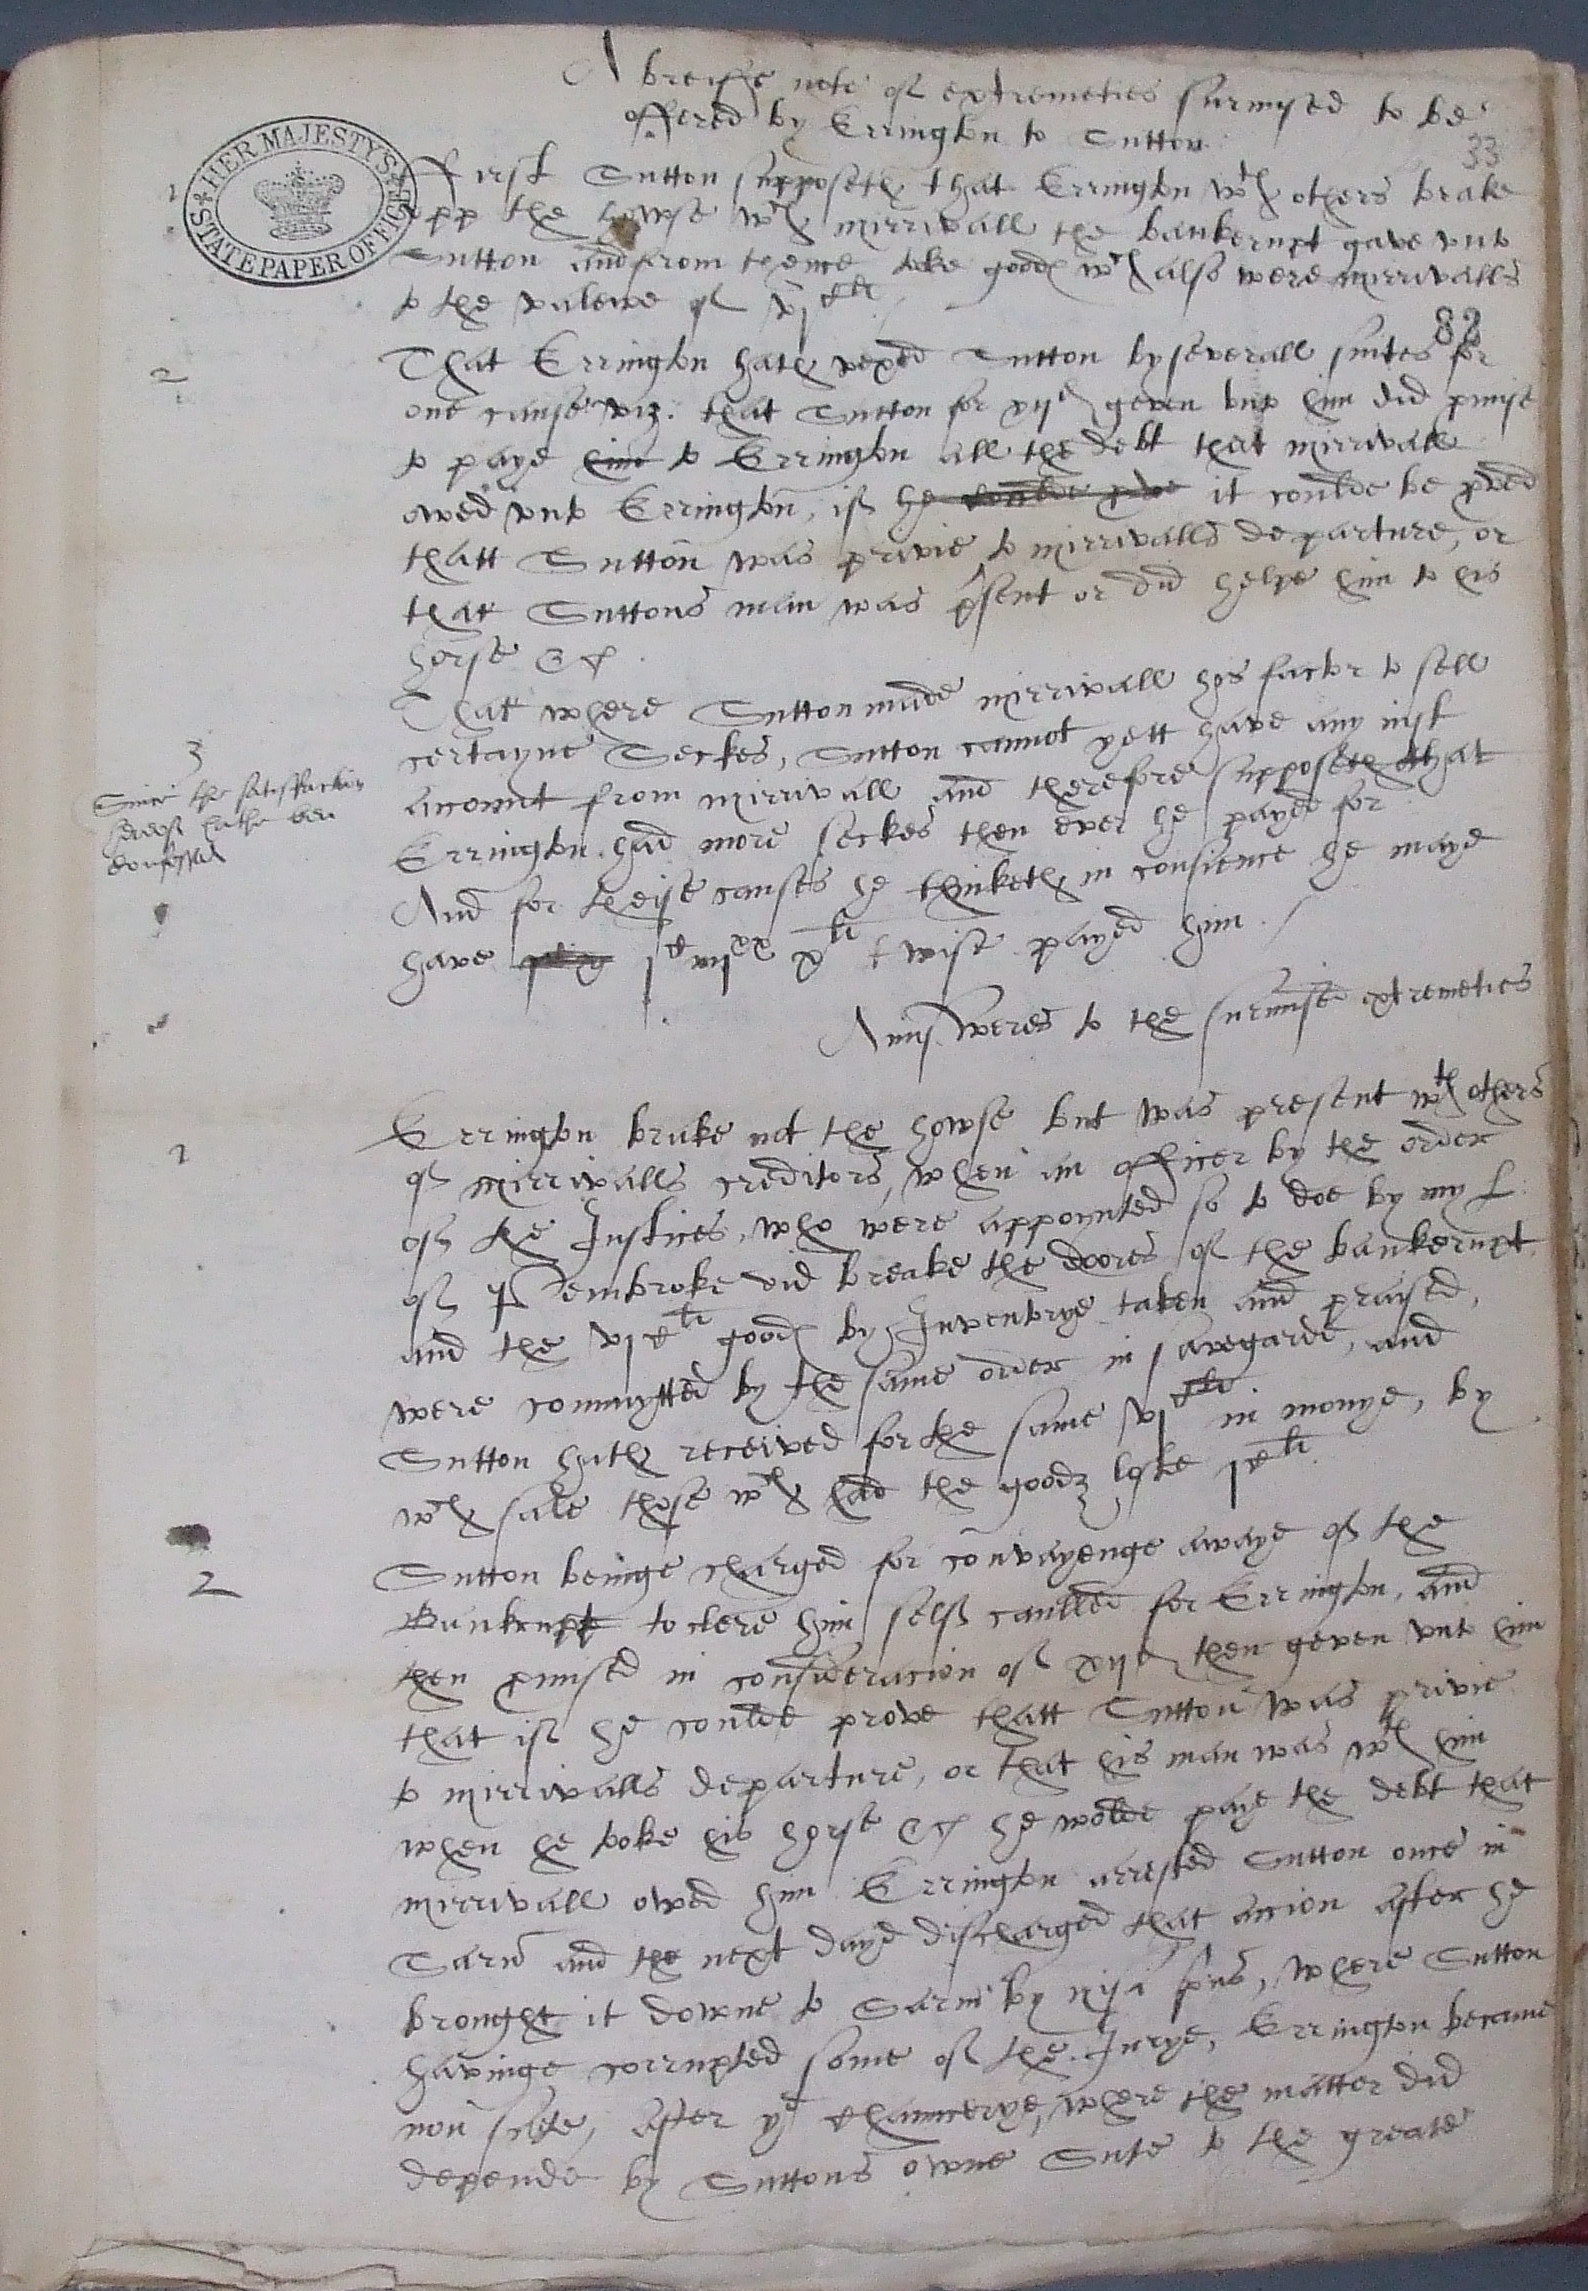 A breiffe note of extremeties surmysed to be
offered by Errington to Sutton
33
HER MAJESTY'S STATE PAPER OFFICE
1 First Sutton supposeth that Errington wth others brake
upp the howse wch mirrivall the bankerupt gave unto
Sutton and from thence toke goods wch also were mirrivalls
to the valewe of vjc li
82
2 That Errington hath vexed Sutton by severall suites for
one cause viz. that Sutton for xijd geven unto him did pmise
to paye him to Errington all the debt that mirrivall
owed unto Errington, if he coulde prove it coulde be pved
thatt Sutton was privie to mirrivalls departure, or
that Suttons man was psent or did helpe him to his
horse &c
3 That where Sutton made mirrivall his factor to sell
certayne Seckes, Sutton cannot yett have any just
acount from mirrivall and therefore supposeth that
Errington had more seckes then ever he payed for
Since the satisfaction
hereof hathe ben
confessed
And for theise causes he thinketh in consience he maye
have jc iiijxx xli twise payed him
Aunsweres to the surmised extremeties
1 Errington brake not the howse but was present wth others
of mirrivalls creditors, when an officer by the order
of the Justices, who were appoynted so to doe by my L
of Pembroke did breake the doores of the bankerupt
and the vjc li goods by Inventorye taken and praised,
were commytted by the same order in savegarde, and
Sutton hath received for the same vjc li in monye, by
wch sale those wch had the goods loste jc li
2 Sutton beinge charged for convayenge awaye of the
Bankrupt to clere him self caulled for Errington, and
then pmised in consideracion of xijd then geven unto him
that if he coulde prove thatt Sutton was privie
to mirrivalls departure, or that his man was wth him
when he toke his horse &c he wolde paye the debt that
mirrivall owed him Errington arrested Sutton once in
Sarum and the next daye discharged that accion after he
brought it downe to Sarum by nisi prius, where Sutton
havinge corrupted some of the Jurye, Errington became
non sute, after ye Chauncerye, where the matter did
depende by Suttons owne Sute to the greate